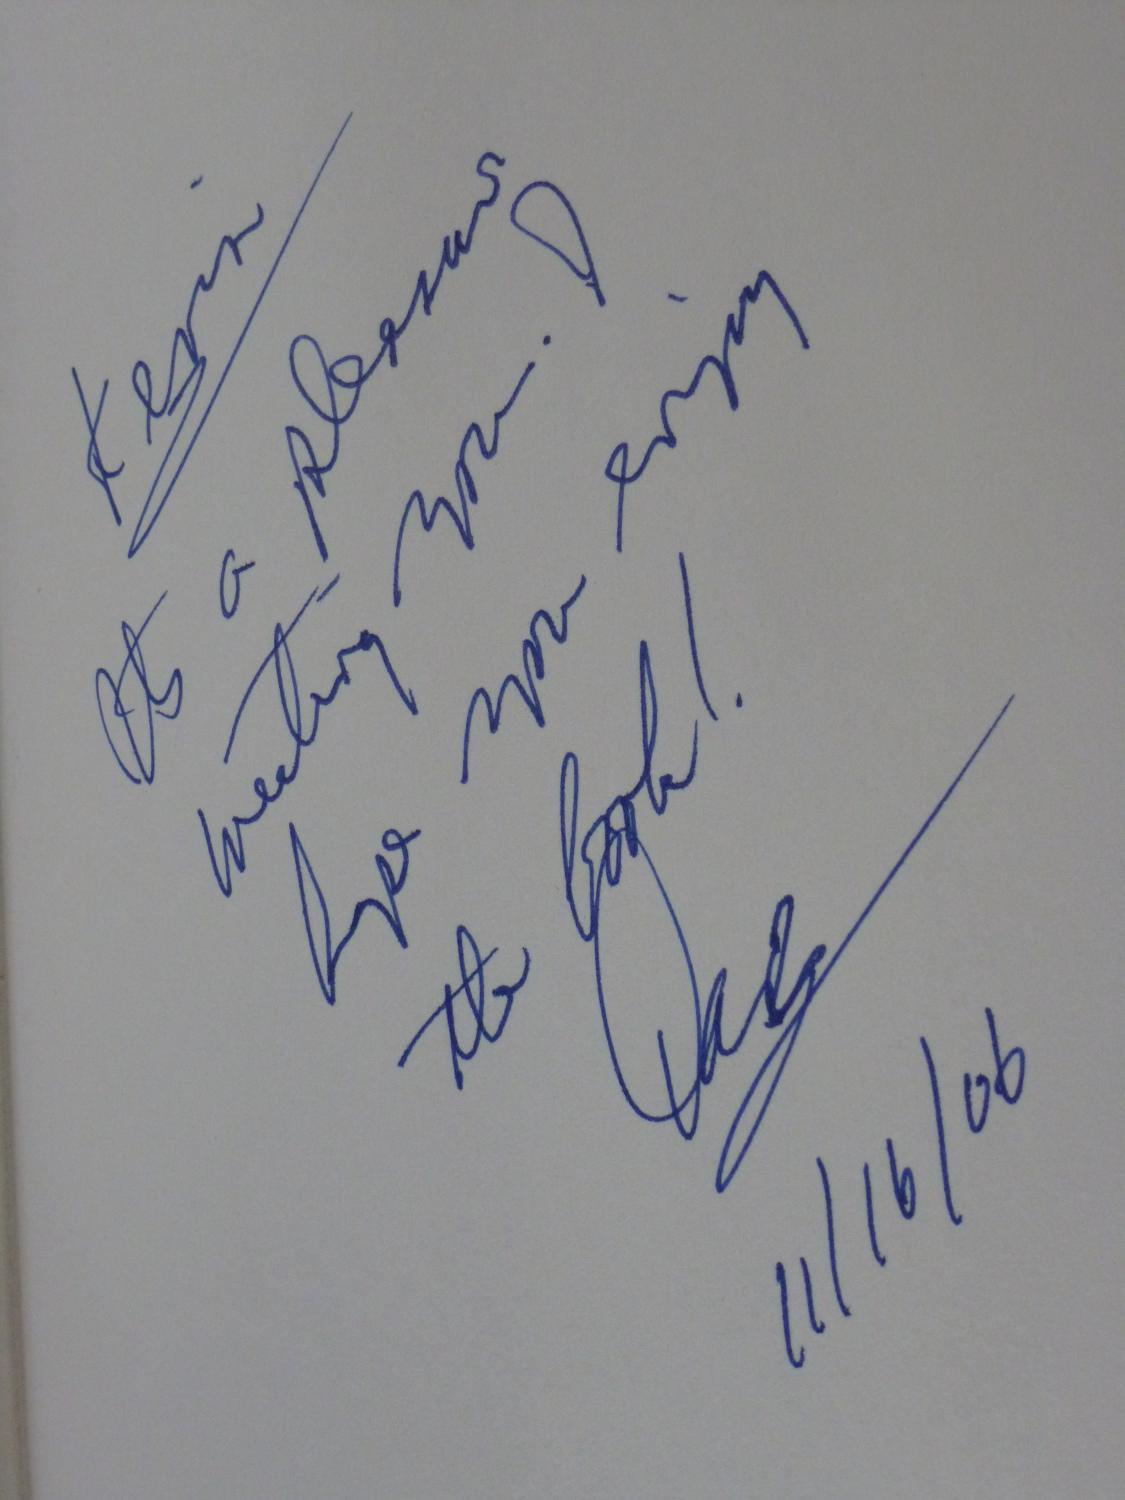 Kevin
Its a pleasure
meeting you.
Hope you enjoy
the book!
11/16/06